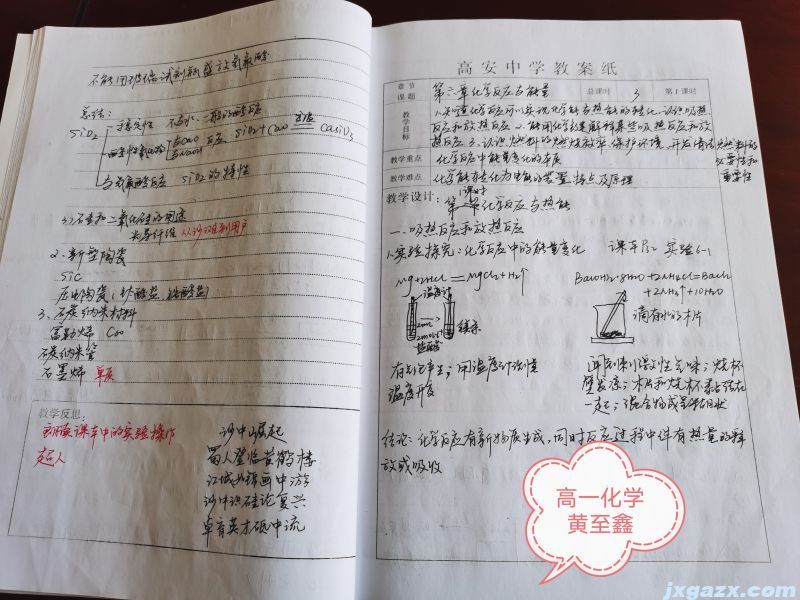 不能用玻璃试剂瓶盛放氢氟酸
总结:
SiO₂
稳定性
酸性氧化物
与CaO
与NaOH
反应
SiO₂+CaO 高温 CaSiO₃
与氢氟酸反应 SiO₂的特性
3)石英和二氧化硅的用途
光导纤维 从沙滩到用户
2、新型陶瓷
SiC
压电陶瓷(钛酸盐、锆酸盐)
3、石炭纳米材料
富勒烯 C60
碳纳米管
石墨烯 单质
教学反思:
朗读课本中的实验操作
沙中崛起
蜀人登临黄鹤楼
江城如锦画中游
沙中识硅论复兴
卓育英才砥中流
高安中学教案纸
章节
课题
第六章化学反应与能量
总课时 3 第1课时
教学目标
1、知道化学反应可以实现化学能与热能的转化,认识吸热
反应和放热反应 2、能用化学键解释某些吸热反应和放
热反应 3、认识燃料的燃烧效率、保护环境、开发清洁燃料的
必要性和
重要性
教学重点
化学反应中能量变化的本质
教学难点
化学能转化为电能的装置特点及原理
教学设计:
1课时
第一 化学反应与热能
一、吸热反应和放热反应
1、实验探究:化学反应中的能量变化 课本P32 实验6-1
Mg+2HCl=MgCl₂+H₂↑
Ba(OH)₂·8H₂O+2NH₄Cl=BaCl₂
+2NH₃↑+10H₂O
温度计
2mL
2mol·L⁻¹
盐酸
镁条
滴有水的木片
有气泡产生;用温度计测量
温度升高
闻到刺激性气味;烧杯
壁发凉;木片和烧杯黏结在
一起;混合物成
结论:化学反应有新物质生成,同时反应过程中伴有热量的释
放或吸收
高一化学
黄至鑫
jxgazx.com